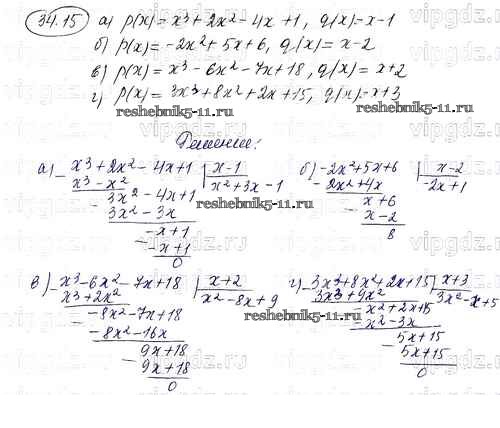 34.15 а) p(x) = x³ + 2x² - 4x + 1, q(x) = x - 1
б) p(x) = -2x² + 5x + 6, q(x) = x - 2
в) p(x) = x³ - 6x² - 7x + 18, q(x) = x + 2
г) p(x) = 3x³ + 8x² + 2x + 15, q(x) = x + 3
reshebnik5-11.ru
reshebnik5-11.ru
Решение:
а) - x³ + 2x² - 4x + 1 | x - 1
x³ - x² | x² + 3x - 1
- 3x² - 4x + 1
3x² - 3x
- -x + 1
-x + 1
0
б) -2x² + 5x + 6 | x - 2
- 2x² + 4x | -2x + 1
- x + 6
x - 2
8
reshebnik5-11.ru
в) - x³ - 6x² - 7x + 18 | x + 2
x³ + 2x² | x² - 8x + 9
- -8x² - 7x + 18
-8x² - 16x
- 9x + 18
9x + 18
0
г) - 3x³ + 8x² + 2x + 15 | x + 3
3x³ + 9x² | 3x² - x + 5
- x² + 2x + 15
- x² - 3x
- 5x + 15
5x + 15
0
reshebnik5-11.ru
reshebnik5-11.ru
vipgdz.ru
vipgdz.ru
vipgdz.ru
vipgdz.ru